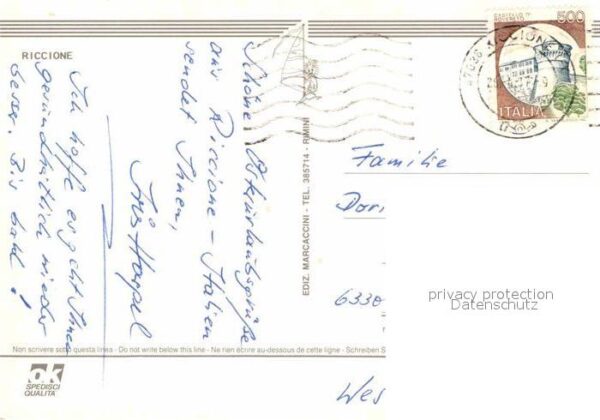 RICCIONE
Schöne Osterurlaubsgrüße
aus Riccione - Italien
sendet Ihnen,
Ich hoffe es geht Ihnen
gesundheitlich wieder
besser. Bis bald!
EDIZ. MARCACCINI - TEL. 385714 - RIMINI
500
ITALIA
Familie
Dori
6330
privacy protection
Datenschutz
Wes
Non scrivere sotto questa linea - Do not write below this line - Ne rien écrire au-dessous de cette ligne - Schreiben S
ok
SPEDISCI
QUALITÀ